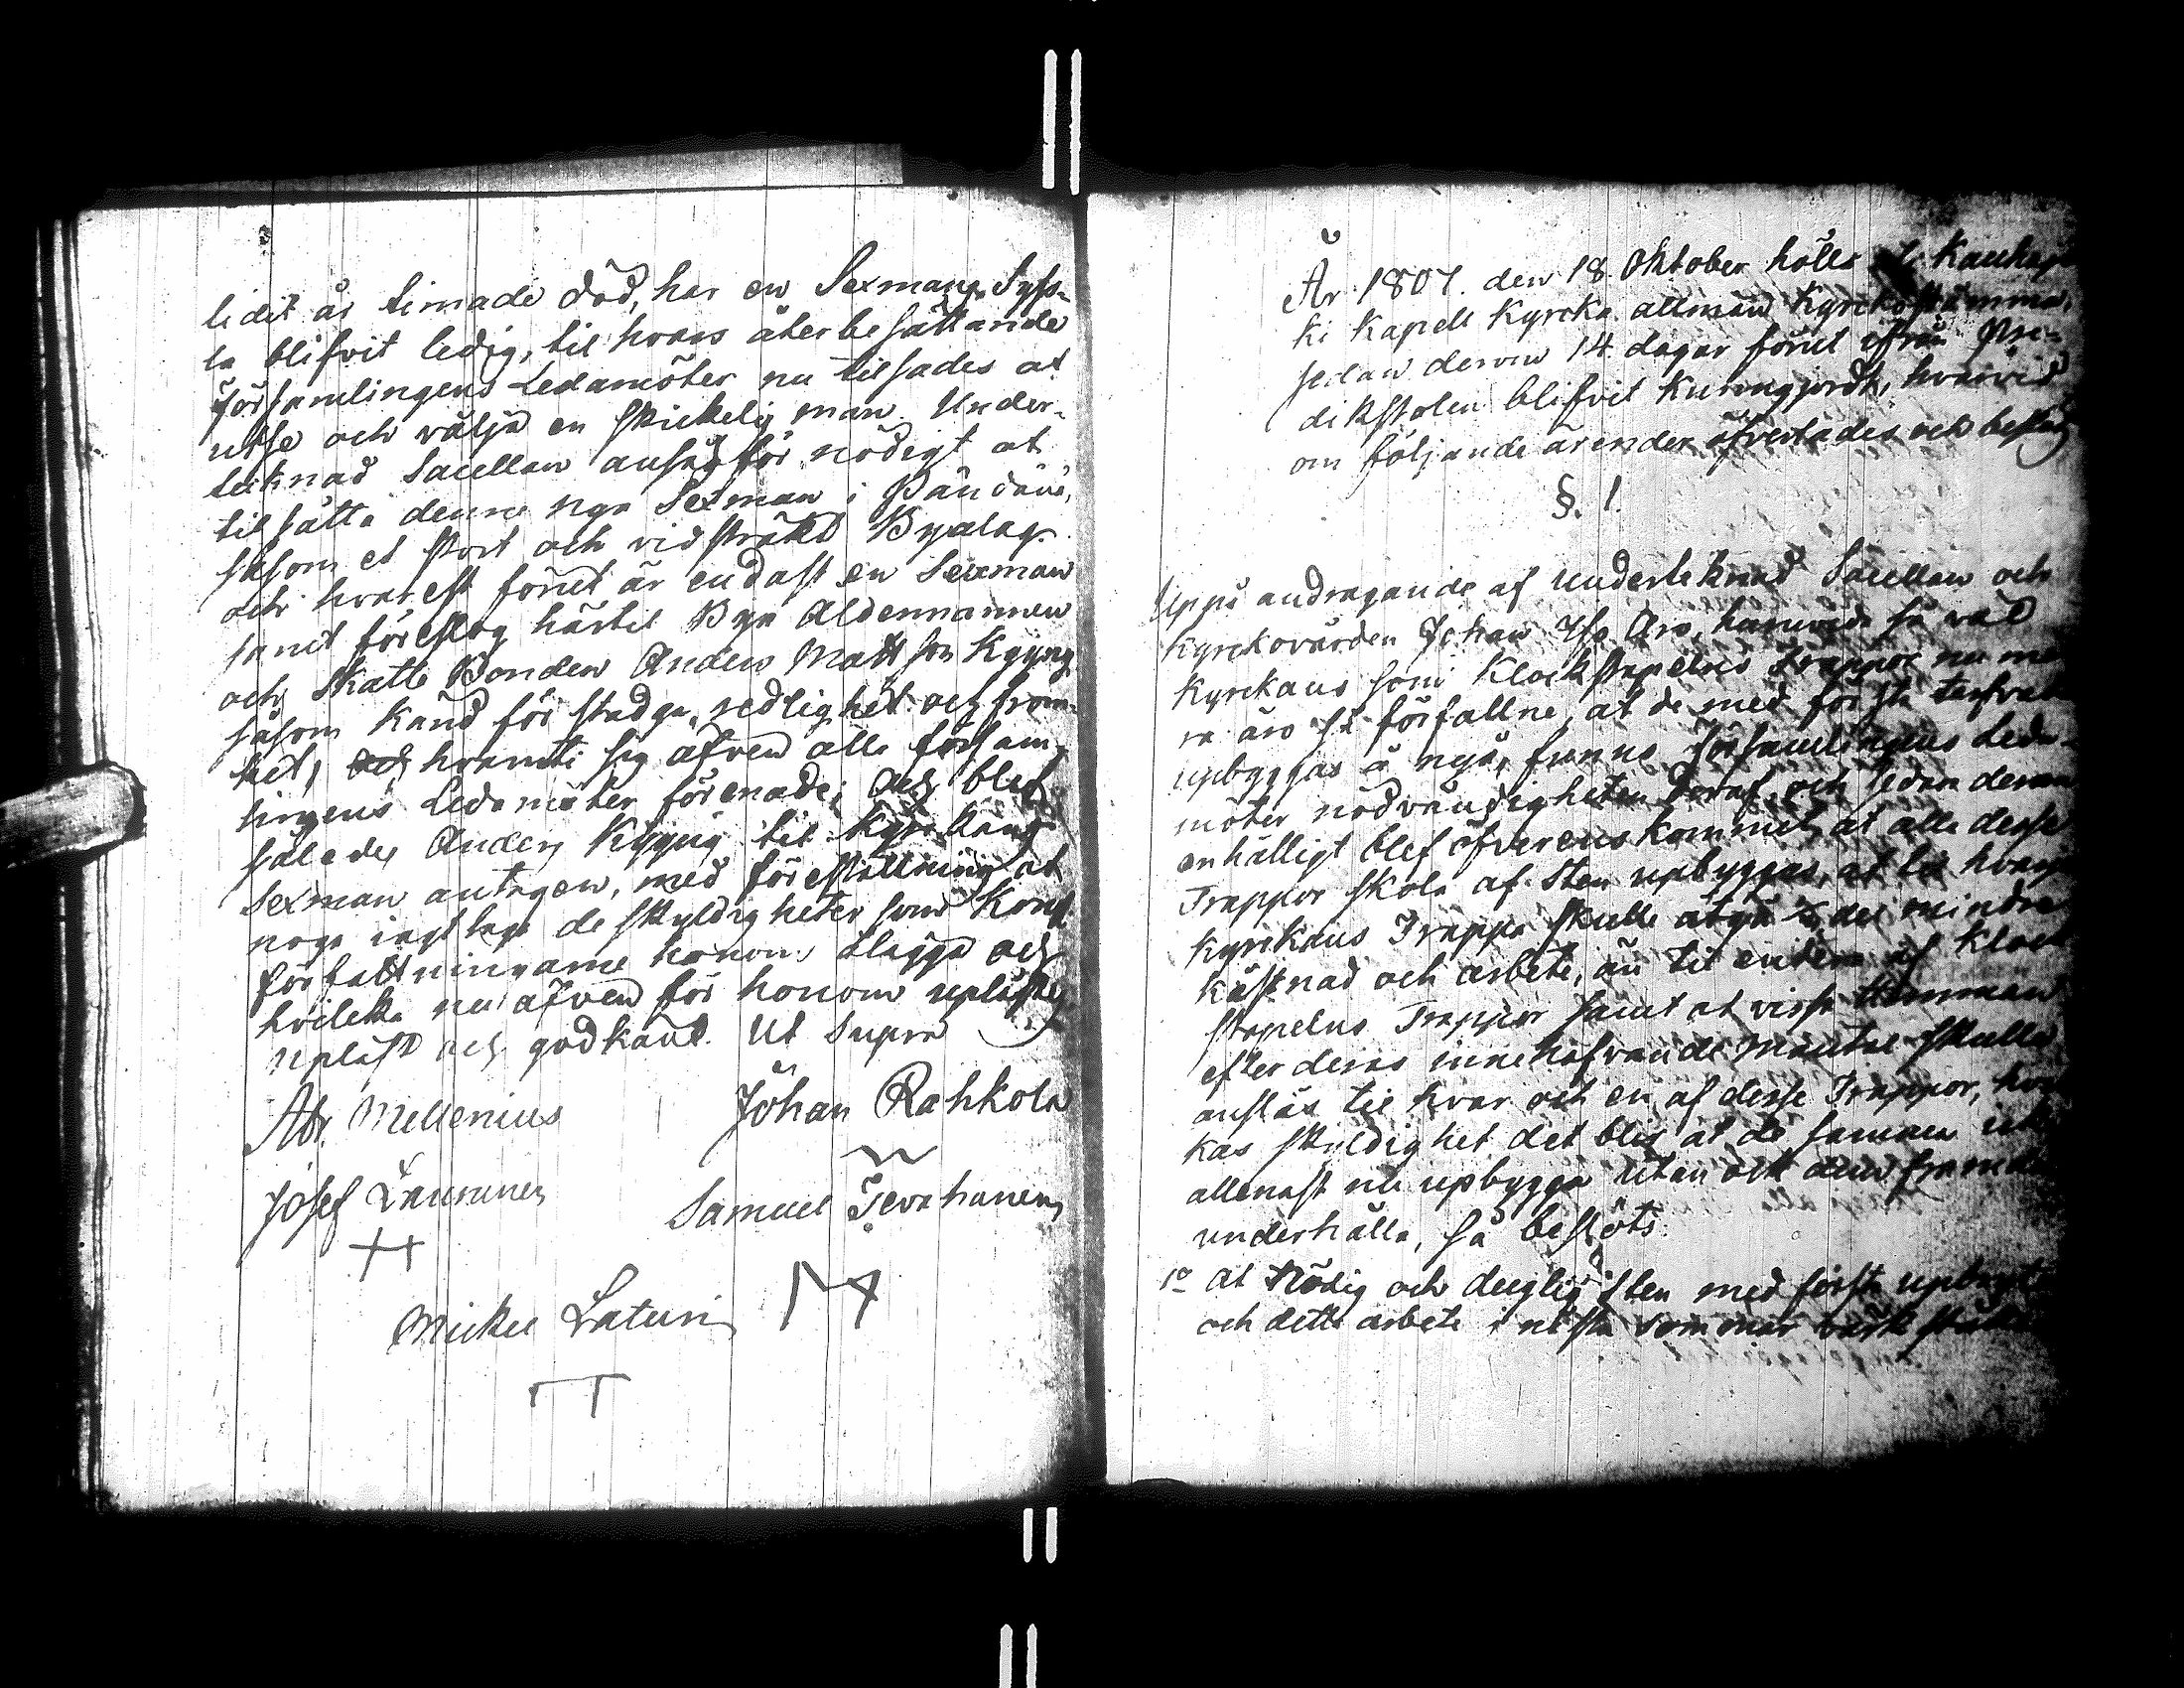 lidit år timade död, har en Sexmans Syss-
la blifvit ledig, til hvars återbesättande
Församlingens Ledamöter nu tilsades at
utse och välja en skickelig man. Under-
teknad Sacellan ansåg för nödigt at
tilsätta denne nya Sexman i Pändäine,
såsom et stort och vidsträkt Byalag
och hvarest förut är endast en Sexman
samt föreslog härtil Bya Åldermannen
och Skatte Bonden Anders Mattson Kyyny
såsom känd för stadga, redlighet och from-
het, hvarmti sig äfven alla församl-
lingens Ledamöter förenade; och blef
således Anders Kyyny til Kyrkans
Sexman antagen, med föreställning at
noga iagttaga de skyldigheter som Kongl.
författningarne honom ålägga och
hvilcka nu äfven för honom uplästes
upläst och godkänt. Ut Supra
Abr. Mellenius Johan Rahkola
Josef Laurunen Samuel Tervahanen
Mickel Laturi
År 1807. den 18. Oktober hölls Kauhaja-
ki Kapell Kyrcka allmän Kyrckostämma,
sedan derom 14 dagar förut ifrån Pre-
dikstolen blifvit kunnggjordt, hvarvid
om följande ärender öfverlades och beslöts
§. 1.
Uppå andragande af underteknad Sacellan och
Kyrckovärden Johan Aro, huruvida så väl
Kyrckans som Klockstapelns Trappor nu me
ra äro så förfallne, at de med första
upbyggas å nyo, funno församlingens Leda-
möter nödvändigheten deraf, och sedan derom
enhälligt blef öfverenskommit, at alla desse
Trappor skola af Sten upbyggas, at
Kyrckans Trappa skulle åtgå mindre
kåstnad och arbete, än til endera af Klock
stapelns Trappor samt at visse Hemman
efter deras innehafvande Mantal skulle
anslås til hvar och en af desse Trappor,
kas skyldighet det blir at de samma
allenast nu upbygga utan ock
underhålla, så beslöts.
1o at Nödig och duglig Sten med första
och detta arbete i nästa Sommar